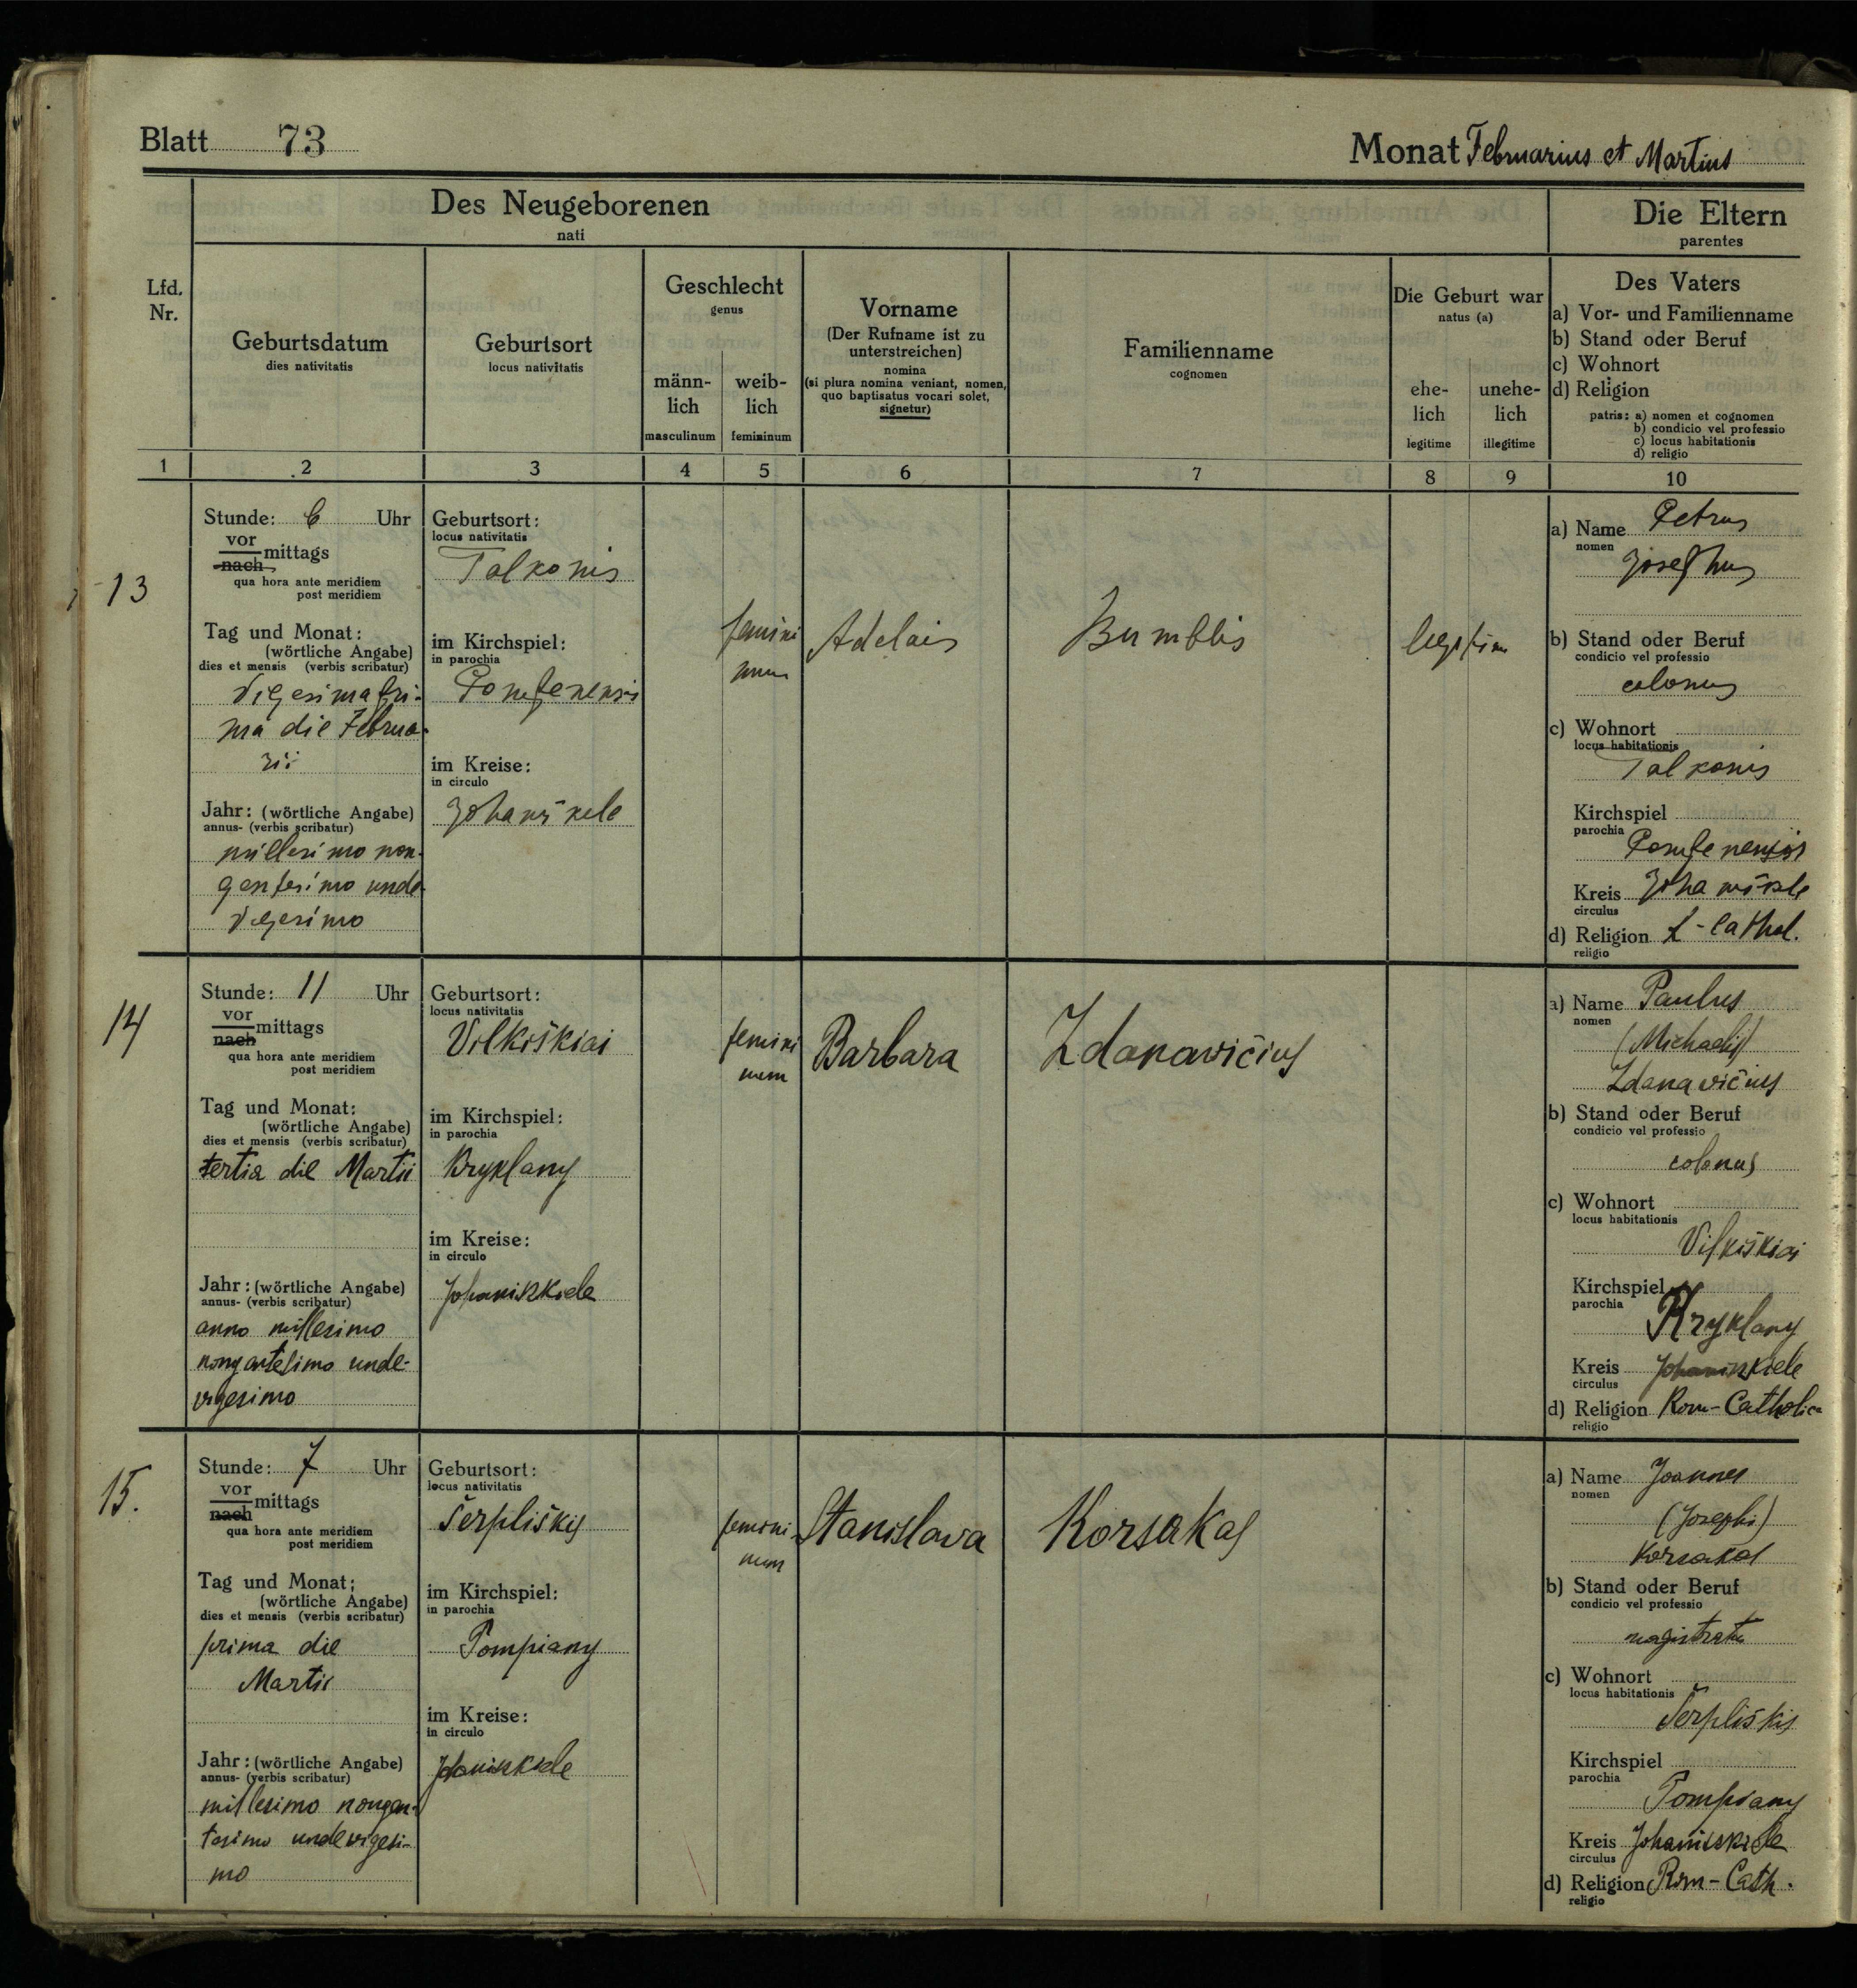 Blatt 73
Monat Februarius et Martius
Des Neugeborenen
nati
Die Eltern
parentes
Lfd. Nr.
Geburtsdatum
dies nativitatis
Geburtsort
locus nativitatis
Geschlecht
genus
männ-
lich
masculinum
weib-
lich
femininum
Vorname
(Der Rufname ist zu
unterstreichen)
nomina
(si plura nomina veniant, nomen,
quo baptisatus vocari solet,
signetur)
Familienname
cognomen
Die Geburt war
natus (a)
ehe-
lich
legitime
unehe-
lich
illegitime
Des Vaters
a) Vor- und Familienname
b) Stand oder Beruf
c) Wohnort
d) Religion
patris: a) nomen et cognomen
b) condicio vel professio
c) locus habitationis
d) religio
1 2 3 4 5 6 7 8 9 10
13
Stunde: 6 Uhr
vor
nach
mittags
qua hora ante meridiem
post meridiem
Tag und Monat:
(wörtliche Angabe)
dies et mensis (verbis scribatur)
Vigesima pri-
ma die Februa-
rii
Jahr: (wörtliche Angabe)
annus- (verbis scribatur)
millesimo non-
gentesimo unde-
vigesimo
Geburtsort:
locus nativitatis
Talkonis
im Kirchspiel:
in parochia
Pompenensis
im Kreise:
in circulo
Johaniškele
femini
num
Adelais
Bumblis
legitim
a) Name Petrus
nomen
Josephus
b) Stand oder Beruf
condicio vel professio
colonus
c) Wohnort
locus habitationis
Talkonis
Kirchspiel
parochia
Pompenensis
Kreis Johaniškele
circulus
d) Religion r-cathol.
religio
14
Stunde: 11 Uhr
vor
nach
mittags
qua hora ante meridiem
post meridiem
Tag und Monat:
(wörtliche Angabe)
dies et mensis (verbis scribatur)
tertia die Martii
Jahr: (wörtliche Angabe)
annus- (verbis scribatur)
anno millesimo
nongentesimo unde-
vigesimo
Geburtsort:
locus nativitatis
Vilkiškiai
im Kirchspiel:
in parochia
Kryklany
im Kreise:
in circulo
Johaniskiele
femini
num
Barbara
Zdanavičius
a) Name Paulus
nomen
(Michaelis)
Zdanavičius
b) Stand oder Beruf
condicio vel professio
colonus
c) Wohnort
locus habitationis
Vilkiškiai
Kirchspiel
parochia
Kryklany
Kreis Johaniskiele
circulus
d) Religion Rom-Catholica
religio
15.
Stunde: 7 Uhr
vor
nach
mittags
qua hora ante meridiem
post meridiem
Tag und Monat:
(wörtliche Angabe)
dies et mensis (verbis scribatur)
prima die
Martii
Jahr: (wörtliche Angabe)
annus- (verbis scribatur)
millesimo nongen-
tesimo undevigesi-
mo
Geburtsort:
locus nativitatis
Šerpliškis
im Kirchspiel:
in parochia
Pompiany
im Kreise:
in circulo
Johaniskiele
femini
num
Stanislava
Korsakas
a) Name Joannes
nomen
(Josephi)
Korsakas
b) Stand oder Beruf
condicio vel professio
c) Wohnort
locus habitationis
Šerpliškis
Kirchspiel
parochia
Pompiany
Kreis Johaniskiele
circulus
d) Religion Rom-Cath.
religio